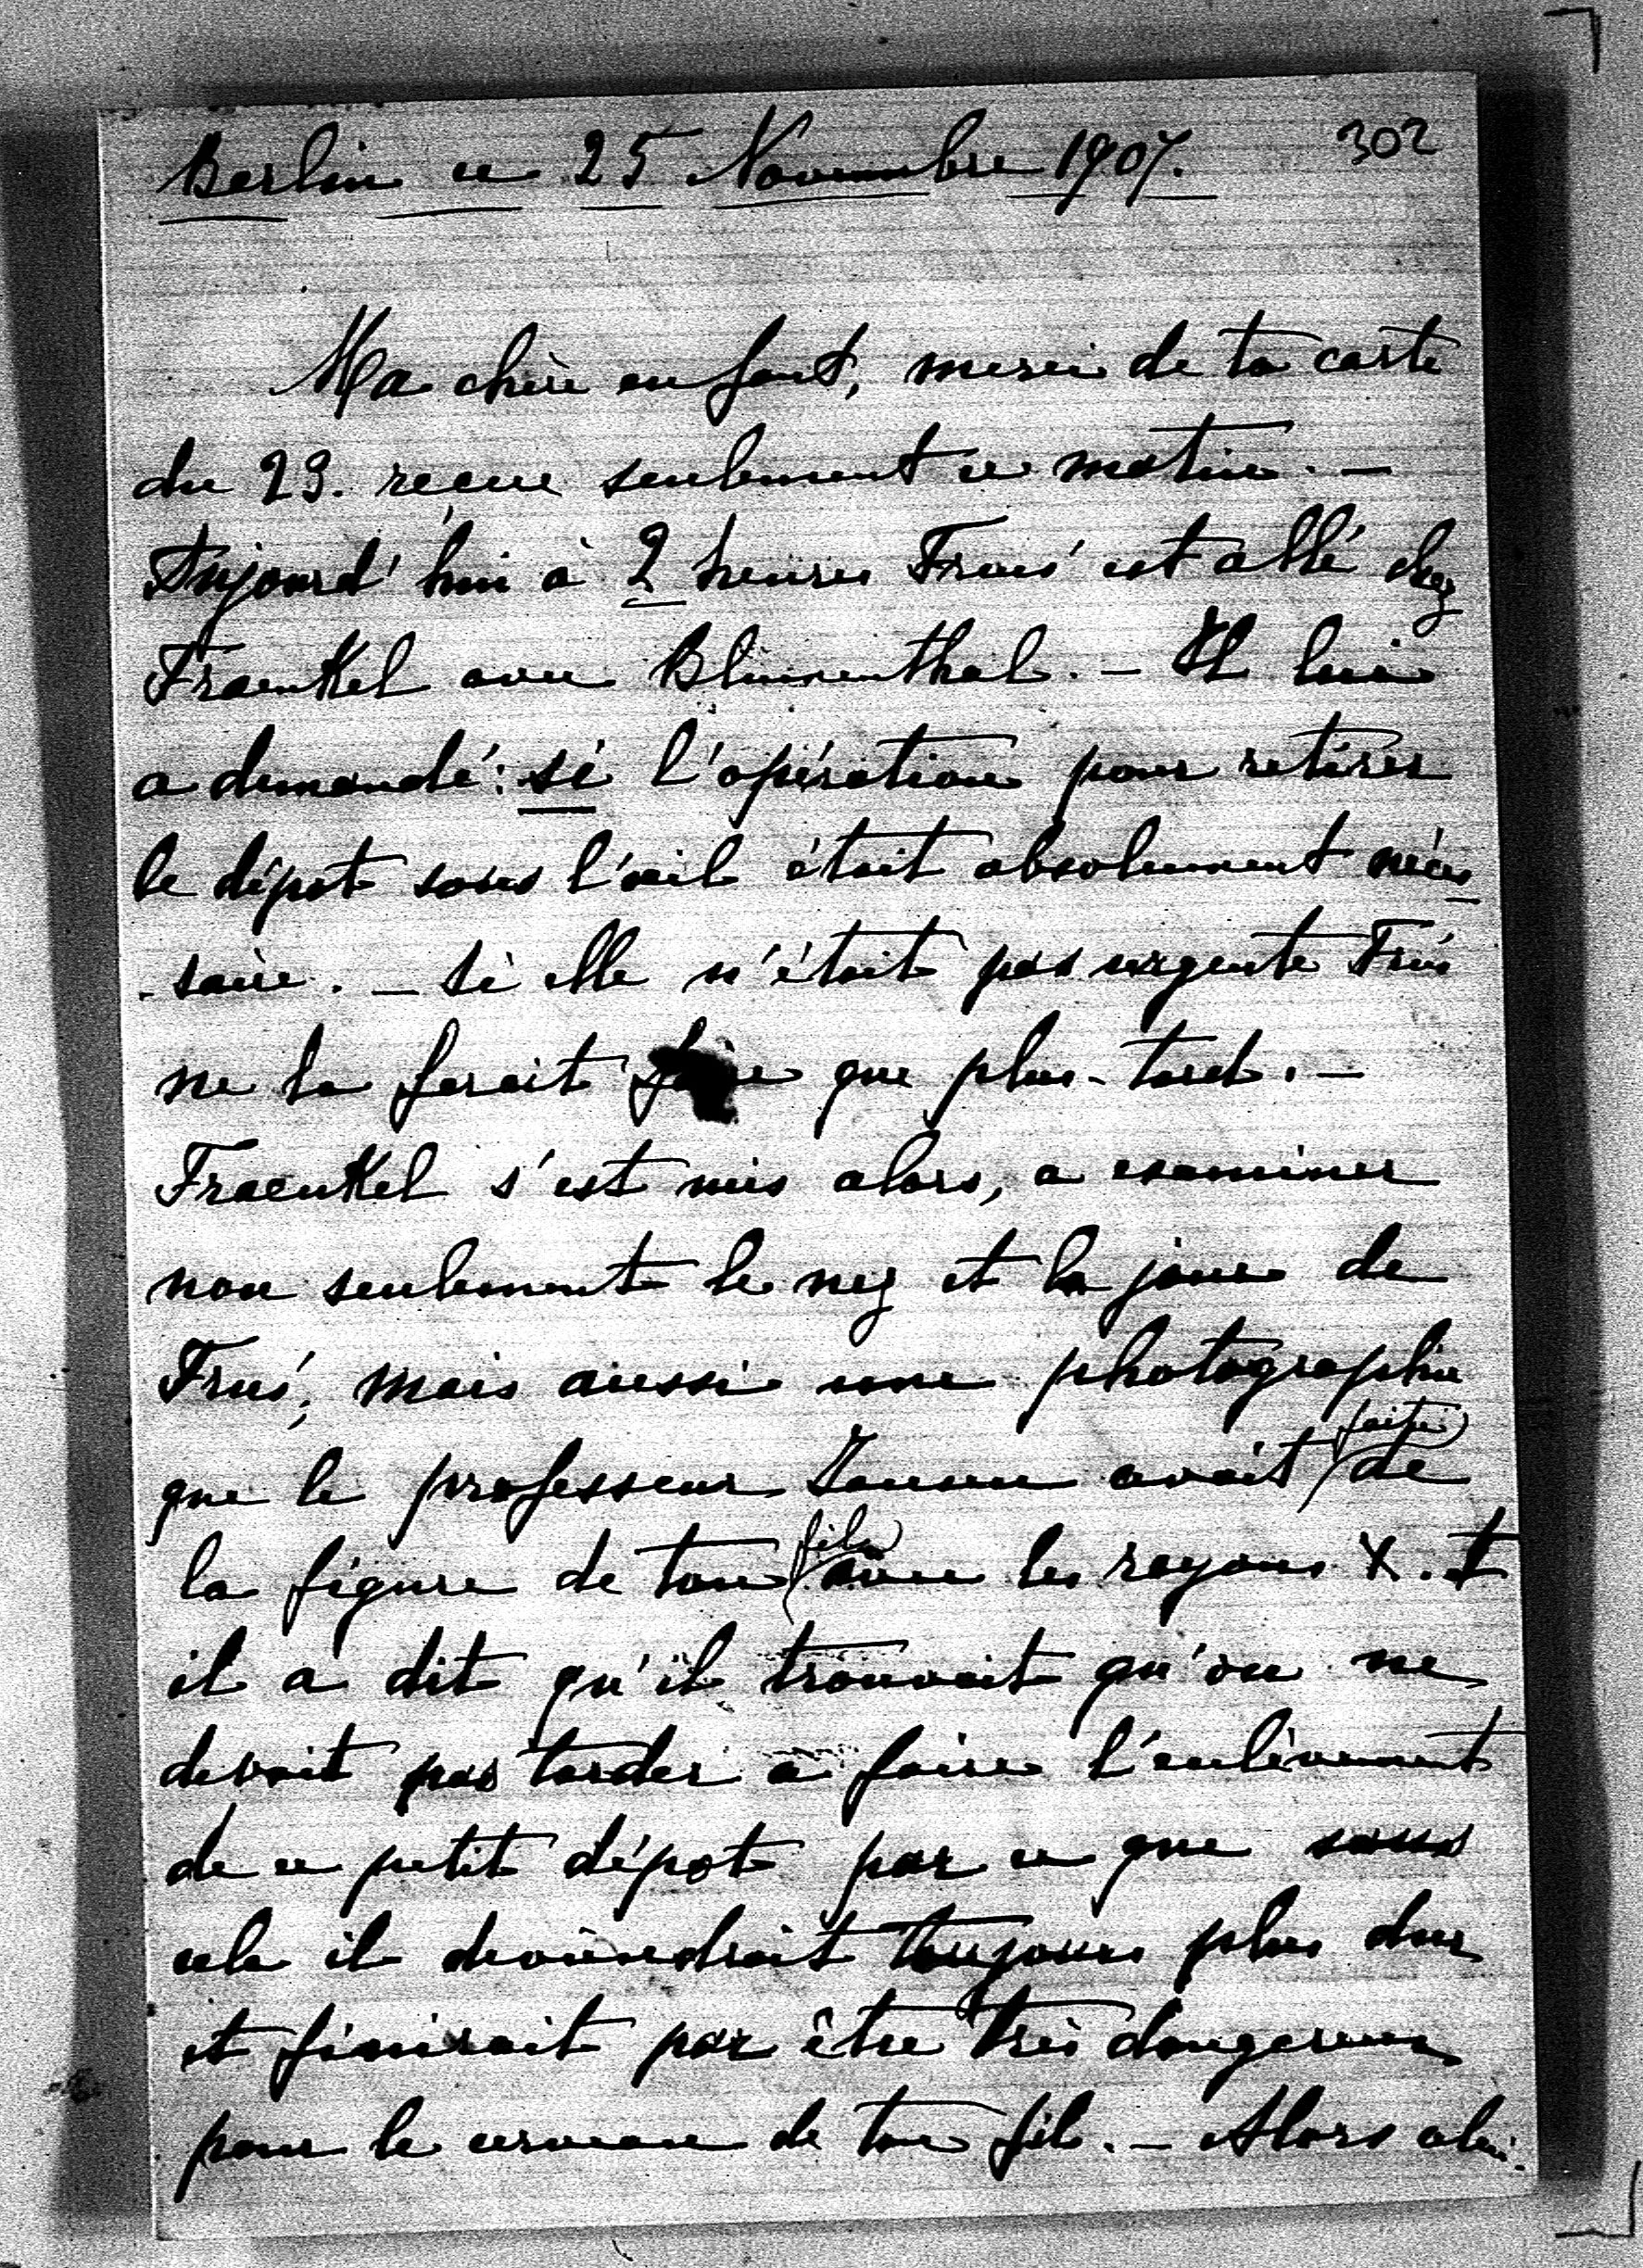 Berlin ce 25 Novembre 1907.
302
Ma chère enfant, merci de ta carte
du 23. reçue seulement ce matin. —
Aujourd'hui à 2 heures Frus' est allé chez
Fraenkel avec Blumenthal. — Il lui
a demandé: si l'opération pour retirer
le dépot sous l'œil était absolument néces
- saire. — Si elle n'était pas urgente Frus'
ne la ferait faire que plus-tard. —
Fraenkel s'est mis alors, a examiner
non seulement le nez et la joue de
Frus', mais aussi une photographie
que le professeur avait faite de
la figure de ton fils avec les rayons X. et
il a dit qu'il trouvait qu'on ne
devait pas tarder à faire l'enlèvement
de ce petit dépot par ce que sans
cela il deviendrait toujours plus dur
et finirait par être très dangereux
pour le cerveau de ton fils. — Alors